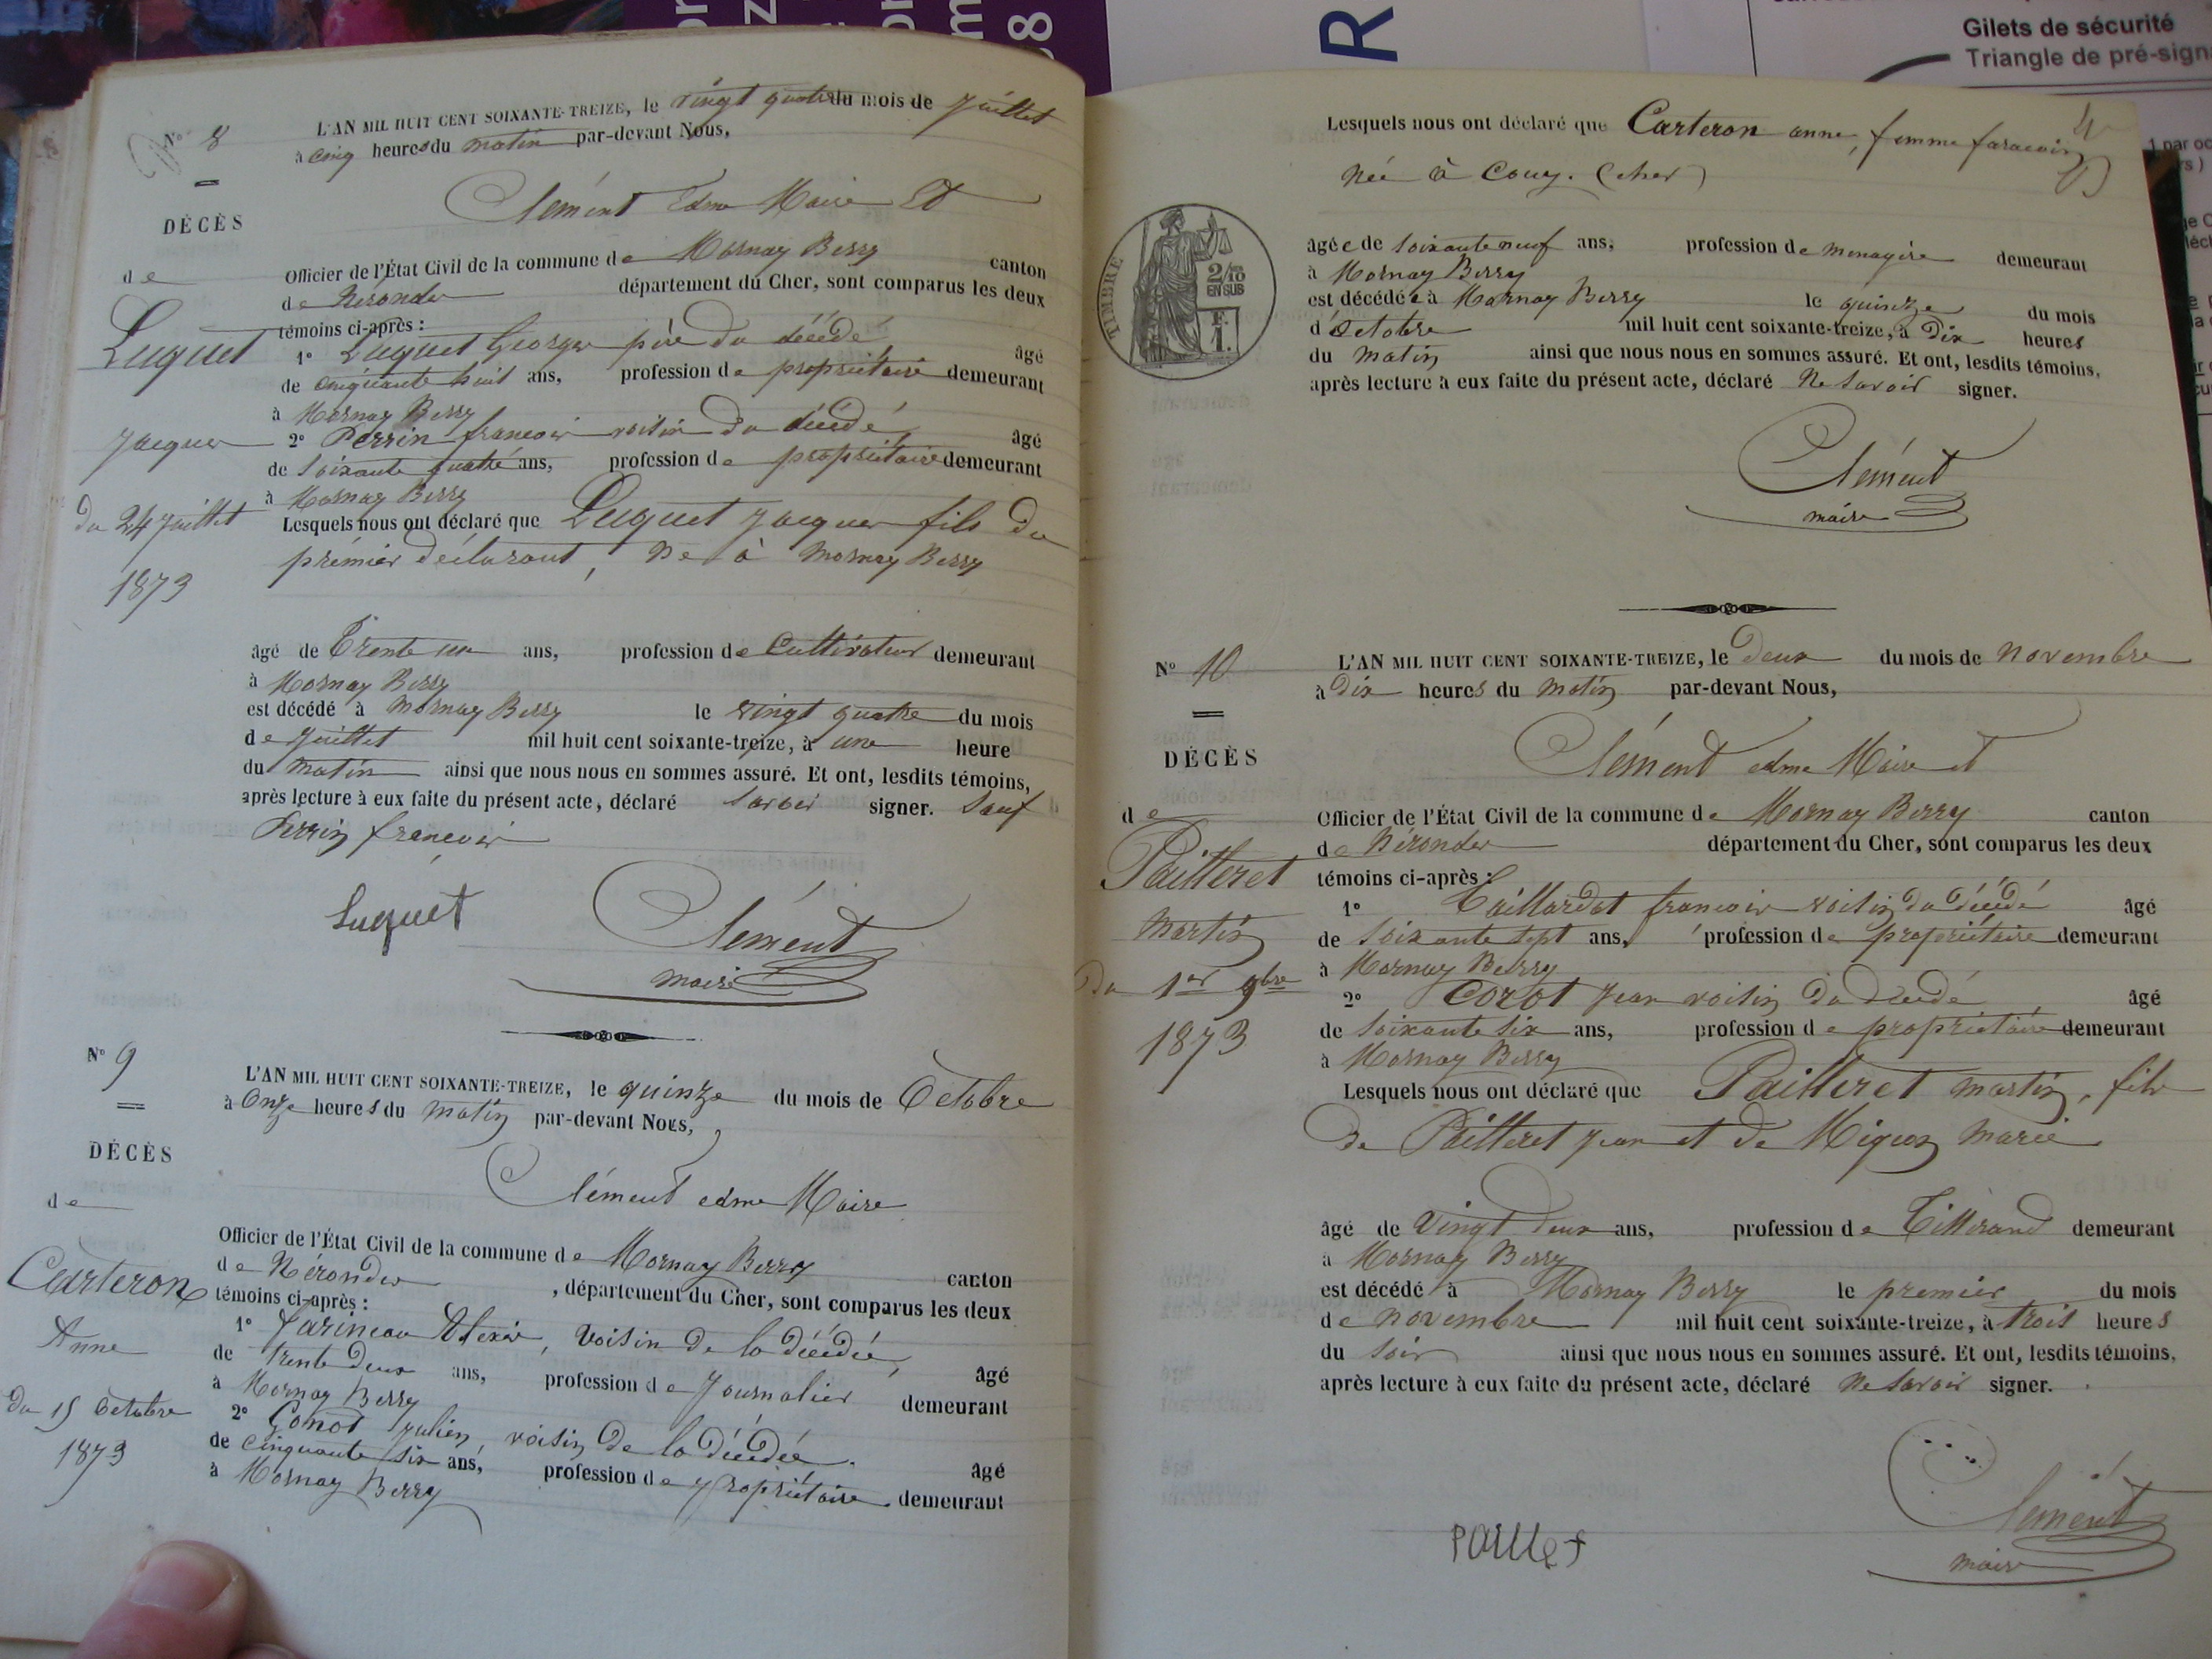 Gilets de sécurité
Triangle de pré-sign
R
N° 8
L'AN MIL HUIT CENT SOIXANTE-TREIZE, le vingt quatre du mois de Juillet
à cinq heures du matin par-devant Nous,
Clément Edme Maire Et
DÉCÈS
de
Officier de l'État Civil de la commune de Mornay Berry canton
de Nérondes département du Cher, sont comparus les deux
témoins ci-après :
Luquet
1° Luquet George père du décédé âgé
de cinquante huit ans, profession de propriétaire demeurant
à Mornay Berry
Jacques
2° Perrin francois voisin du décédé, âgé
de soixante quatre ans, profession de propriétaire demeurant
à Mornay Berry
du 24 Juillet
Lesquels nous ont déclaré que Luquet Jacques fils du
premier déclarant, Né à Mornay Berry
1873
âgé de Trente un ans, profession de Cultivateur demeurant
à Mornay Berry
est décédé à Mornay Berry le vingt quatre du mois
de Juillet mil huit cent soixante-treize, à une heure
du matin ainsi que nous nous en sommes assuré. Et ont, lesdits témoins,
après lecture à eux faite du présent acte, déclaré savoir signer. Sauf
Perrin francois
Luquet
Clément
maire
N° 9
L'AN MIL HUIT CENT SOIXANTE-TREIZE, le quinze du mois de Octobre
à Onze heures du matin par-devant Nous,
DÉCÈS
Clément edme Maire
de
Officier de l'État Civil de la commune de Mornay Berry canton
de Nérondes, département du Cher, sont comparus les deux
témoins ci-après :
Carteron
1° Farineau Alexis, voisin de la décédée, âgé
Anne
de trente deux ans, profession de Journalier demeurant
à Mornay Berry
du 15 Octobre
2° Gonot Julien, voisin de la décédée. âgé
1873
de cinquante six ans, profession de propriétaire demeurant
à Mornay Berry
Lesquels nous ont déclaré que Carteron anne, femme
née à Couy. (cher)
TIMBRE
2/10
EN SUB
F.
1.
âgée de soixante neuf ans, profession de menagère demeurant
à Mornay Berry
est décédée à Mornay Berry le quinze du mois
d'Octobre mil huit cent soixante-treize, à Dix heures
du matin ainsi que nous nous en sommes assuré. Et ont, lesdits témoins,
après lecture à eux faite du présent acte, déclaré Ne savoir signer.
Clément
maire
N° 10
L'AN MIL HUIT CENT SOIXANTE-TREIZE, le Deux du mois de Novembre
à Dix heures du matin par-devant Nous,
DÉCÈS
Clément edme Maire et
de
Officier de l'État Civil de la commune de Mornay Berry canton
de Nérondes département du Cher, sont comparus les deux
témoins ci-après :
Pailleret
1° Taillardat francois voisin du décédé âgé
Martin
de soixante sept ans, profession de propriétaire demeurant
à Mornay Berry
du 1er 9bre
2° Corot Jean voisin du décédé âgé
1873
de soixante six ans, profession de propriétaire demeurant
à Mornay Berry
Lesquels nous ont déclaré que Pailleret martin, fils
de Pailleret Jean et de Migeon Marie
âgé de Vingt deux ans, profession de Tisserand demeurant
à Mornay Berry
est décédé à Mornay Berry le premier du mois
de novembre mil huit cent soixante-treize, à trois heures
du soir ainsi que nous nous en sommes assuré. Et ont, lesdits témoins,
après lecture à eux faite du présent acte, déclaré Ne savoir signer.
Clément
maire